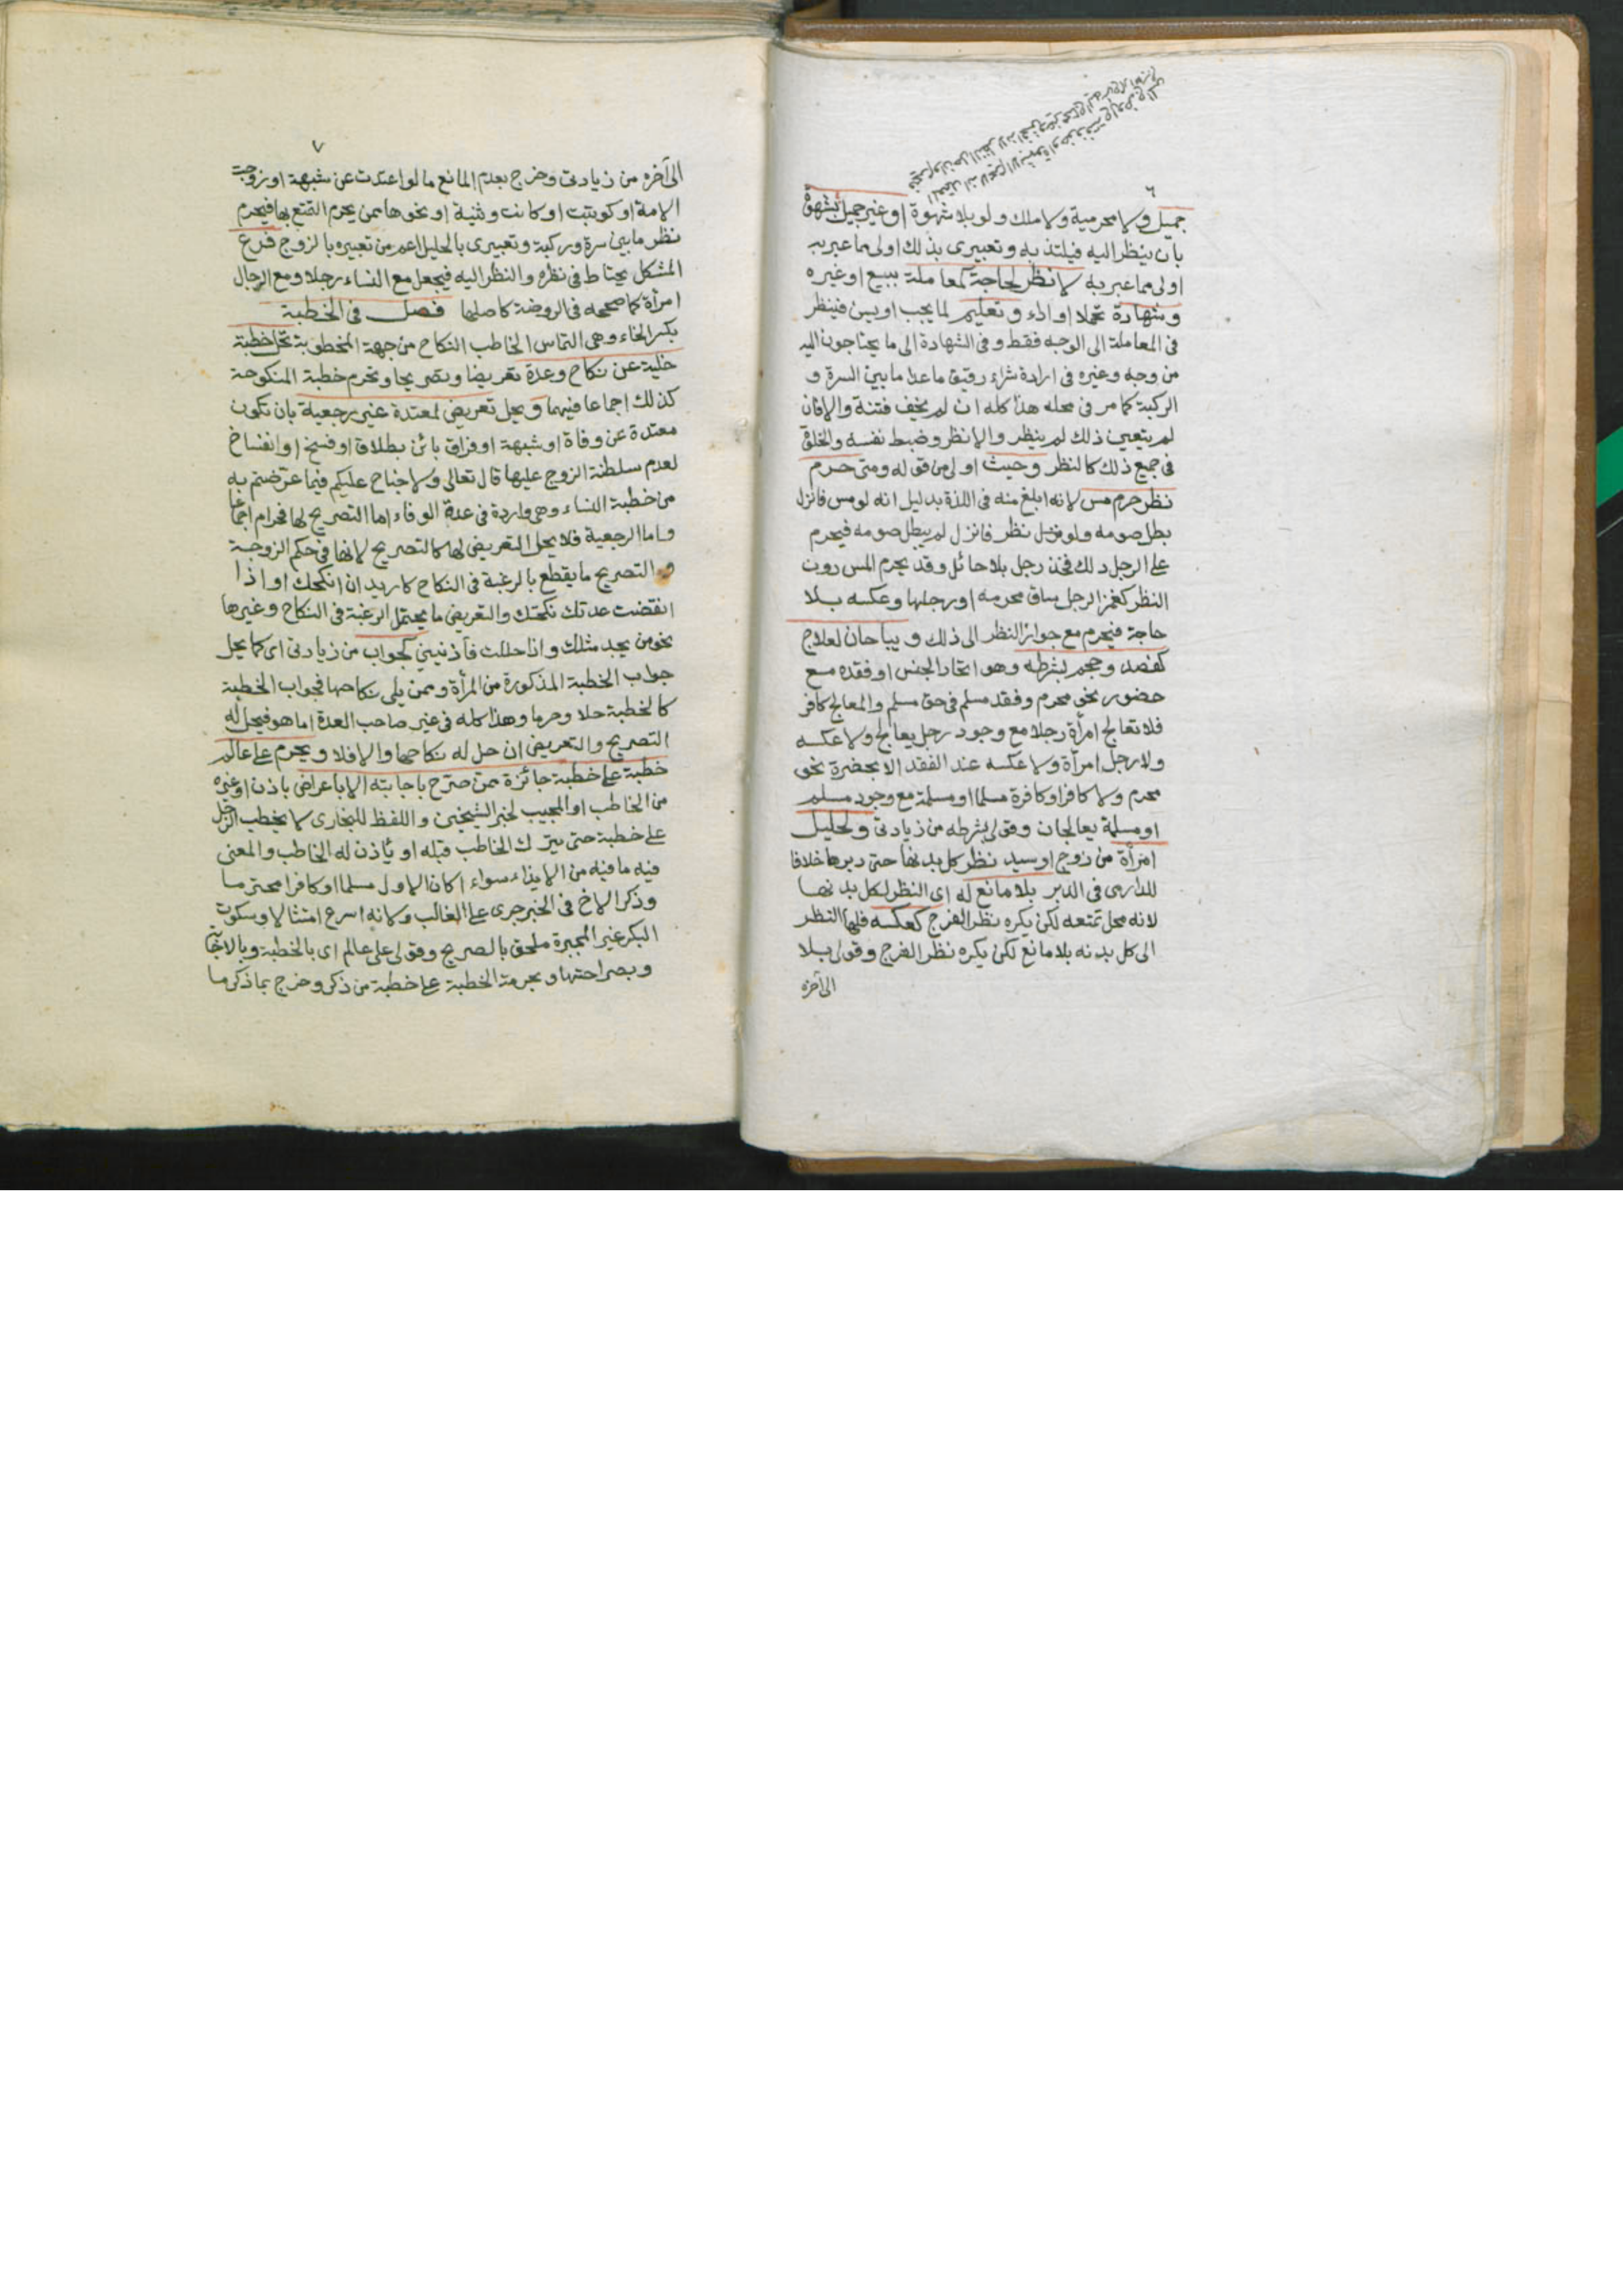 ٦
جميل ولا محرمية ولا ملك ولو بلا شهوة او غير جميل بشهوة
بان ينظر اليه فيلتذ به وتعبيرى بذلك اولى مما عبر به
اولى مما عبر به لا نظر لحاجة كمعاملة ببيع او غيره
وشهادة تحملا او اداء وتعليم لما يجب او يسن فينظر
فى المعاملة الى الوجه فقط وفى الشهادة الى ما يحتاجون اليه
من وجه وغيره فى ارادة شراء رقيق ماعدا ما بين السرة و
الركبة كما مر فى محله هذا كله ان لم يخف فتنة والا فان
لم يتعين ذلك لم ينظر والا نظر وضبط نفسه والخلوة
فى جميع ذلك كالنظر وحيث اولى من قوله ومتى حرم
نظر حرم مس لانه ابلغ منه فى اللذة بدليل انه لو مس فانزل
بطل صومه ولو نظر فانزل لم يبطل صومه فيحرم
على الرجل دلك فخذ رجل بلا حائل وقد يحرم المس دون
النظر كغمز الرجل ساق محرمه او رجلها وعكسه بلا
حاجة فيحرم مع جواز النظر الى ذلك ويباحان لعلاج
كفصد وحجم بشرطه وهو اتحاد الجنس او فقده مع
حضور نحو محرم وفقد مسلم فى حق مسلم والمعالج كافر
فلا تعالج امرأة رجلا مع وجود رجل يعالج ولا عكسه
ولا رجل امرأة ولا عكسه عند الفقد الا بحضرة نحو
محرم ولا كافر او كافرة مسلما او مسلمة مع وجود مسلم
او مسلمة يعالجان وقولى بشرطه من زيادتى ولحليل
امرأة من زوج او سيد نظر كل بدنها حتى دبرها خلافا
للدارمى فى الدبر بلا مانع له اى النظر لكل بدنها
لانه محل تمتعه لكن يكره نظر الفرج كعكسه فلها النظر
الى كل بدنه بلا مانع لكن يكره نظر الفرج وقولى بلا
الى آخره
٧
الى آخره من زيادتى وخرج بعدم المانع ما لو اعتدت عن شبهة او زوجت
الامة او كوتبت او كانت وثنية او نحوها ممن يحرم التمتع بها فيحرم
نظر ما بين سرة وركبة وتعبيرى بالحليل اعم من تعبيره بالزوج فرع
المشكل يحتاط فى نظره والنظر اليه فيجعل مع النساء رجلا ومع الرجال
امرأة كما صححه فى الروضة كاصلها فصل فى الخطبة
بكسر الخاء وهى التماس الخاطب النكاح من جهة المخطوبة تحل خطبة
خلية عن نكاح وعدة تعريضا وتصريحا وتحرم خطبة المنكوحة
كذلك اجماعا فيهما ويحل تعريض لمعتدة غير رجعية بان تكون
معتدة عن وفاة او شبهة او فراق بائن بطلاق او فسخ او انفساخ
لعدم سلطنة الزوج عليها قال تعالى ولا جناح عليكم فيما عرضتم به
من خطبة النساء وهى واردة فى عدة الوفاء اما التصريح لها فحرام اجماعا
واما الرجعية فلا يحل التعريض لها كالتصريح لانها فى حكم الزوجة
والتصريح ما يقطع بالرغبة فى النكاح كاريد ان انكحك او اذا
انقضت عدتك نكحتك والتعريض ما يحتمل الرغبة فى النكاح وغيرها
نحو من يجد مثلك واذا حللت فآذنينى كجواب من زيادتى اى كما يحل
جواب الخطبة المذكورة من المرأة وممن يلى نكاحها فجواب الخطبة
كالخطبة حلا وحرما وهذا كله فى غير صاحب العدة اما هو فيحل له
التصريح والتعريض ان حل له نكاحها والا فلا ويحرم على عالم
خطبة على خطبة جائزة ممن صرح باجابته الا باعراض باذن او غيره
من الخاطب او المجيب لخبر الشيخين واللفظ للبخارى لا يخطب الرجل
على خطبة حتى يترك الخاطب قبله او يأذن له الخاطب والمعنى
فيه ما فيه من الايذاء سواء اكان الاول مسلما او كافرا محترما
وذكر الاخ فى الخبر جرى على الغالب ولانه اسرع امتثالا وسكوت
البكر غير المجبرة ملحق بالصريح وقولى على عالم اى بالخطبة وبالاجابة
وبصراحتها وبحرمة الخطبة على خطبة من ذكر وخرج بما ذكر ما